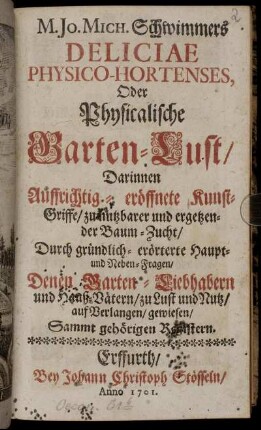 2
M. JO. MICH. Schwimmers
DELICIAE
PHYSICO-HORTENSES,
Oder
Physicalische
Garten-Lust/
Darinnen
Auffrichtig- eröffnete Kunst-
Griffe/ zu nutzbarer und ergetzen-
der Baum-Zucht/
Durch gründlich-erörterte Haupt-
und Neben-Fragen/
Denen Garten-Liebhabern
und Hauß-Vätern/ zu Lust und Nutz/
auf Verlangen/ gewiesen/
Sammt gehörigen Registern.
Erffurth/
Bey Johann Christoph Stösseln/
Anno 1701.